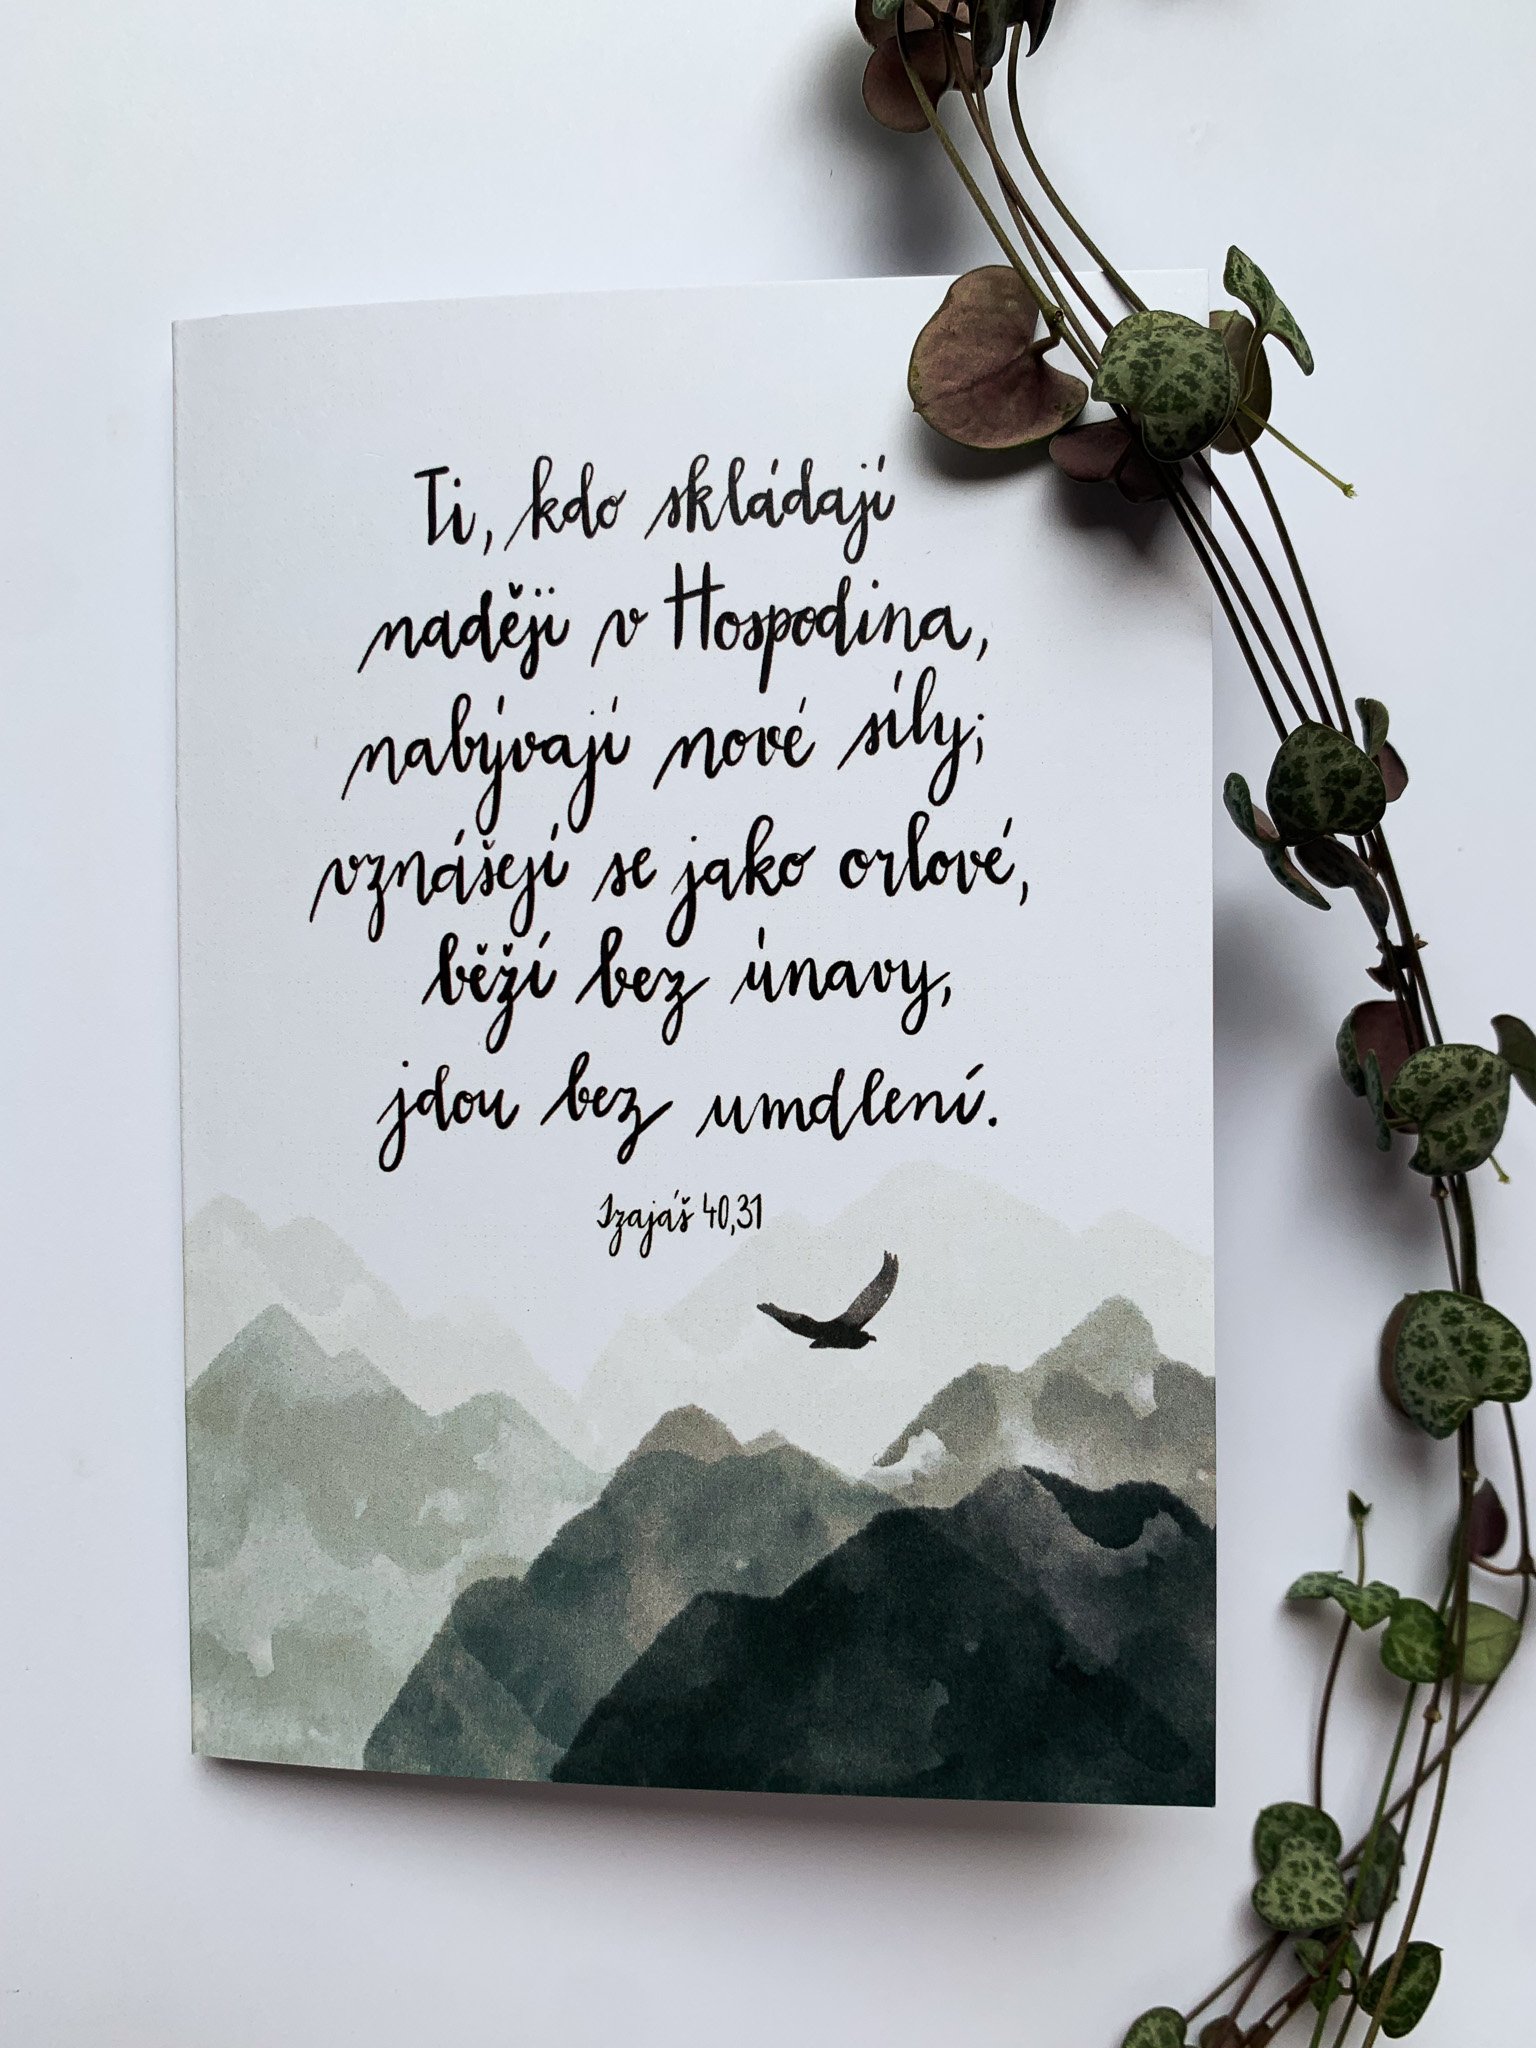 Ti, kdo skládají
naději v Hospodina,
nabývají nové síly;
vznášejí se jako orlové,
běží bez únavy,
jdou bez umdlení.
Izajáš 40,31